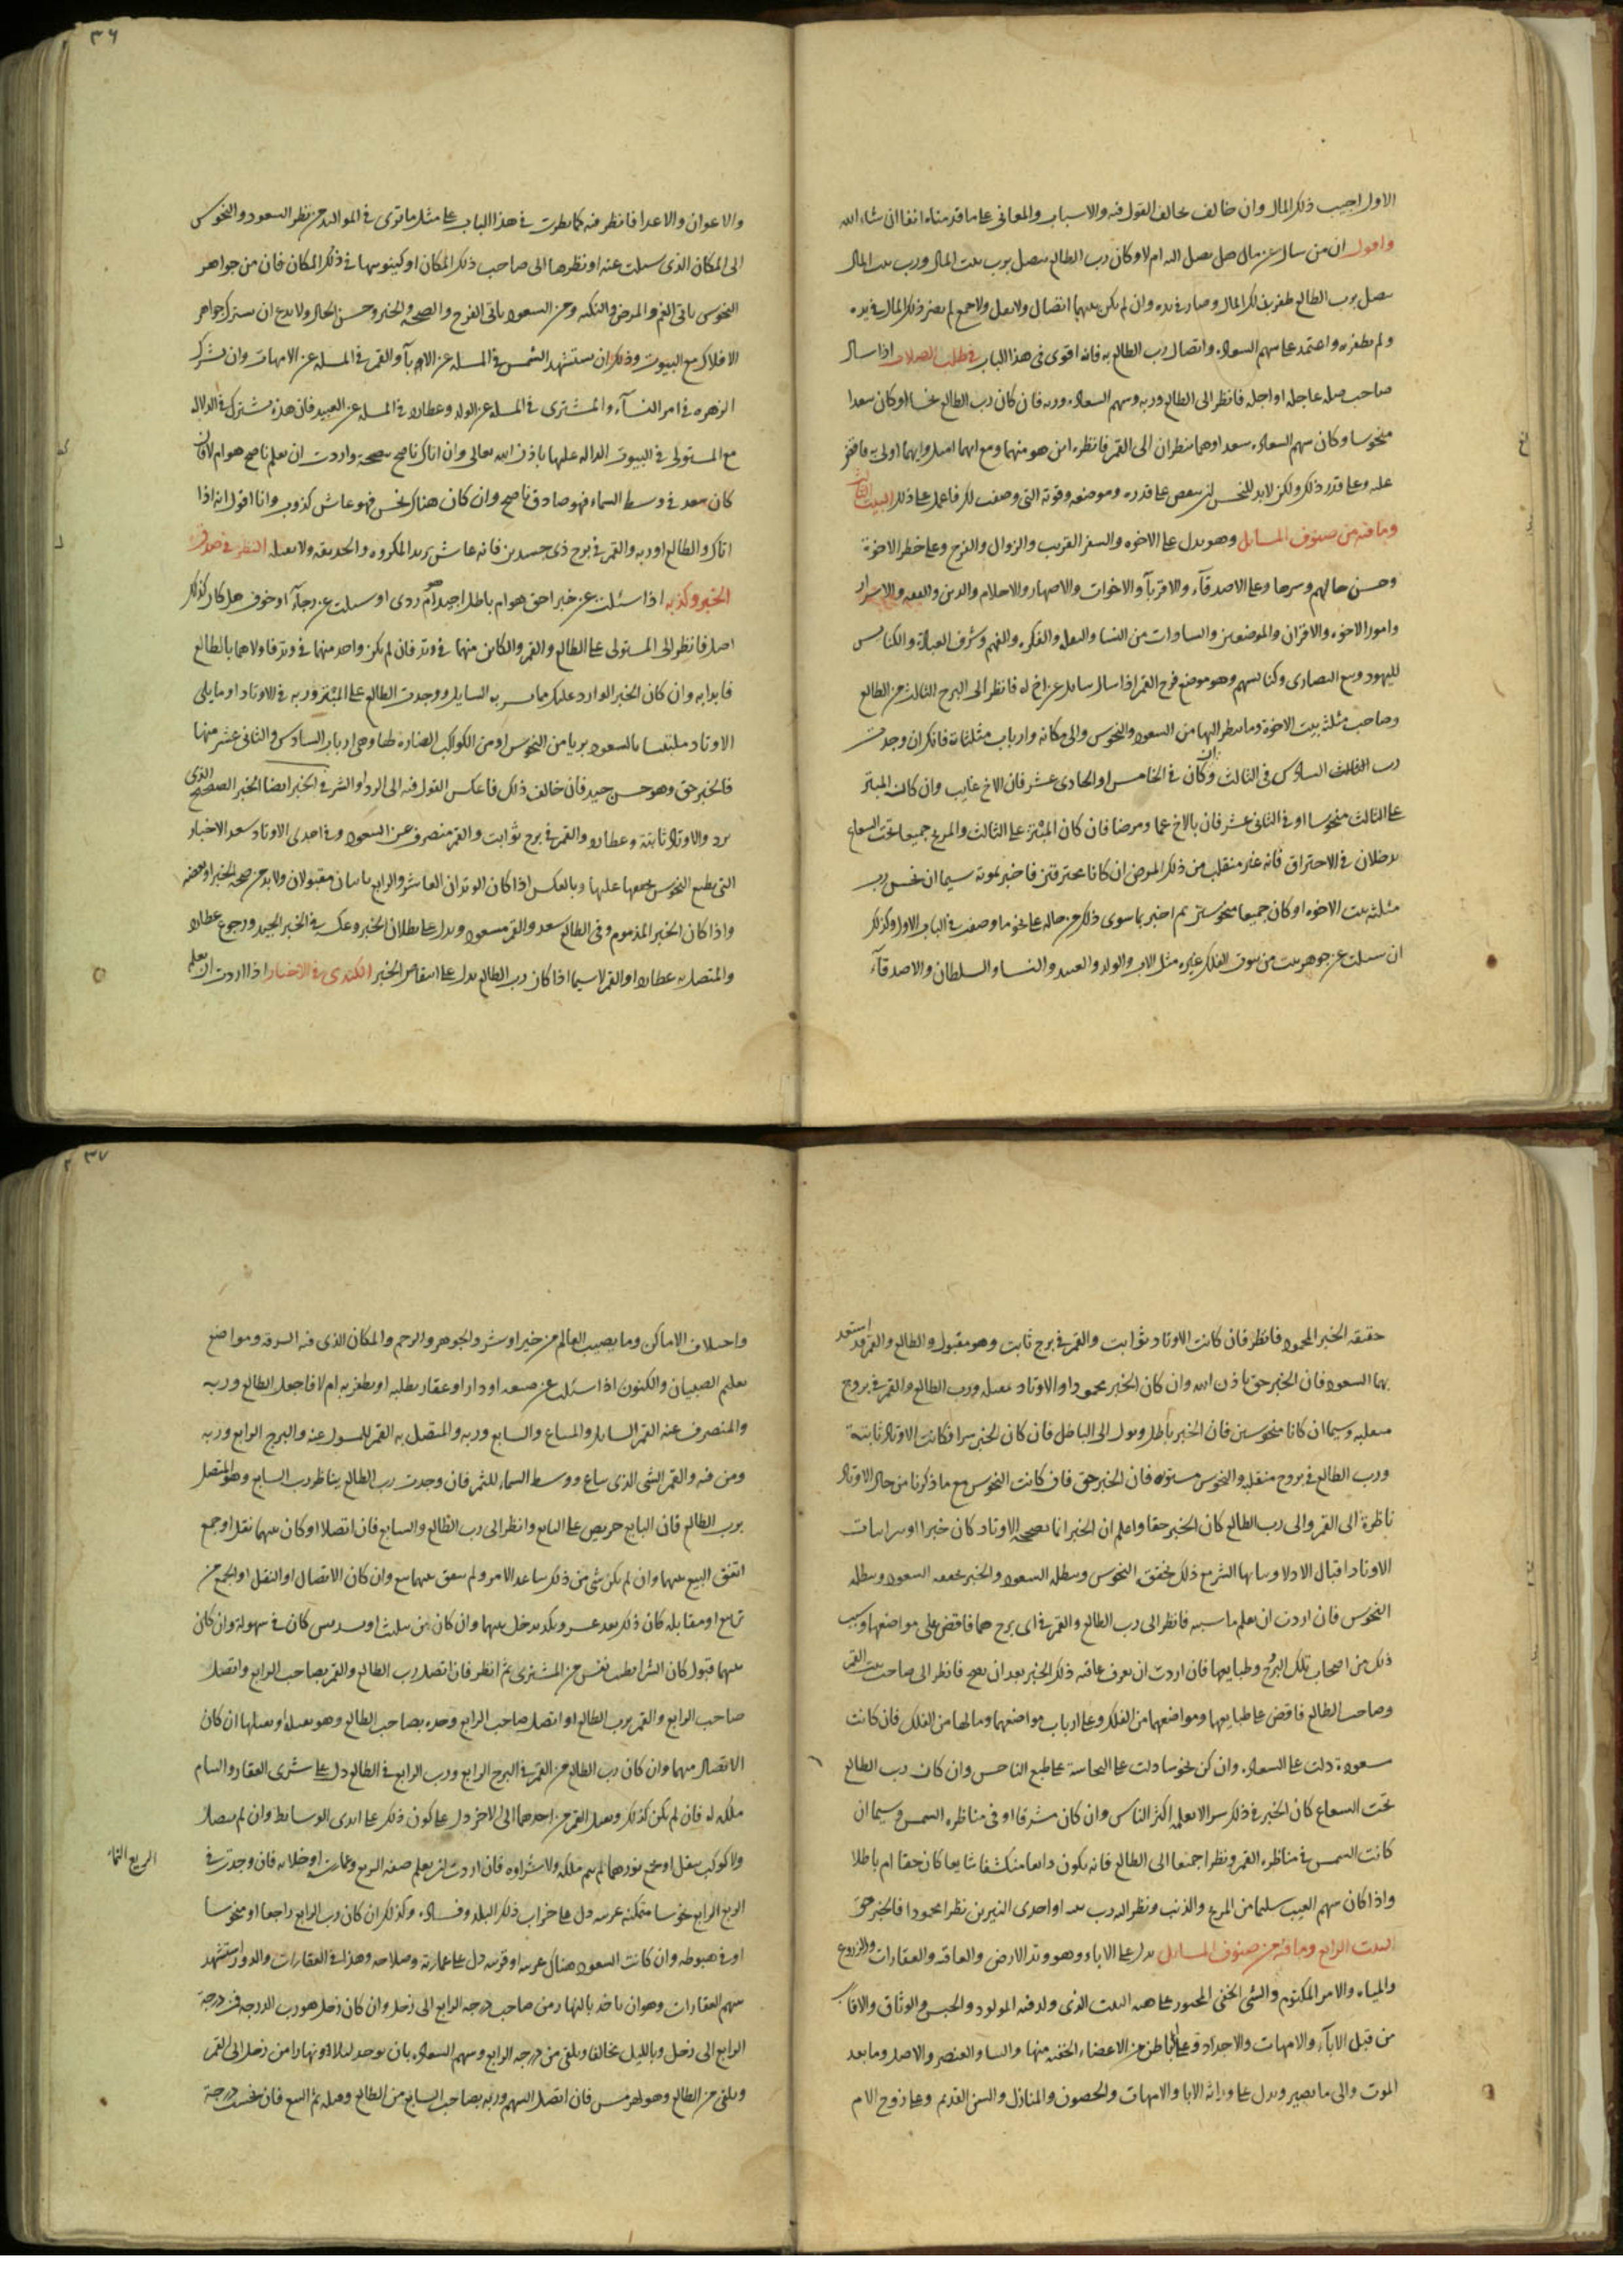 ٣٦
الاول اجيب ذلك المال وان خالف خالف القول فيه والاسباب والمعانى على ما قدمناه انفا ان شاء الله
واقول ان من سال عن مال هل يصل اليه ام لا وكان رب الطالع يتصل برب بيت المال ورب بيت المال
يتصل برب الطالع ظفر بذلك المال وصار فى يده وان لم يكن بينهما اتصال ولا نقل ولا جمع لم يصر ذلك المال فى يده
ولم يظفر به واعتمد على سهم السعادة واتصال رب الطالع به فانه اقوى فى هذا الباب فى طلب الصلات اذا سال
صاحب صله عاجله او اجله فانظر الى الطالع وربه وسهم السعادة وربه فان كان رب الطالع نحسا او كان سعدا
منحوسا وكان سهم السعادة سعد اوهما ينظران الى القمر فانظره اين هو منهما ومع ايهما اميل وايهما اولى به فاقض
عليه وعلى قدر ذلك ولكن لا بد للنحس ان ينقص على قدره وموضعه وقوته التى وصفت لك فاعمل على ذلك البيت الثالث
وما فيه من صنوف المسايل وهو يدل على الاخوه والسفر القريب والزوال والفرح وعلى خطر الاخوة
وحسن حالهم وسرها وعلى الاصدقآء والاقربآ والاخوات والاصهار والاحلام والدين والفقه والاسرار
وامور الاخوه والاقران والموضعين والسادات من النسا والنقله والفكره والفهم وشرف العبادة والكنايس
لليهود وبيع النصارى وكنايسهم وهو موضع فرح القمر اذا سال سايل عن اخ له فانظر الى البرج الثالث من الطالع
وصاحب مثلثه بيت الاخوة وما ينظر اليها من السعود والنحوس والى مكانه وارباب مثلثاته فانك ان وجدت
رب الثالث السادس فى الثالث او كان فى الخامس او الحادى عشر فان الاخ غايب وان كان المبتز
على الثالث منحوسا او فى الثانى عشر فان بالاخ غما ومرضا فان كان المبتز على الثالث والمريخ جميعا تحت الشعاع
يدخلان فى الاحتراق فانه غير منقلب من ذلك المرض ان كانا محترقين فاخبر بموته سيما ان نحس رب
مثلثه بيت الاخوه او كان جميعا منحوسين ثم اخبر بما سوى ذلك من حاله على نحو ما وصفت فى الباب الاول وكذلك
ان سيلت عن جوهر بيت من بيوت الفلك غيره مثل الاب والولد والعبيد والنسا والسلطان والاصدقآء
والاعوان والاعدا فانظر فيه كما نظرت فى هذا الباب على مثل ما ترى فى المواليد من نظر السعود والنحوس
الى المكان الذى سيلت عنه او نظرها الى صاحب ذلك المكان او كينونتها فى ذلك المكان فان من جواهر
النحوس ياتى الغم والمرض والنكبه ومن السعود ياتى الفرح والصحه والخير وحسن الحال ولا تدع ان تشرك جواهر
الافلاك مع البيوت وذلك ان تستشهد الشمس فى المسله عن الابآ والقمر فى المسله عن الامهات وان تشرك
الزهره فى امر النسآء والمشترى فى المسله عن الولد وعطارد فى المسله عن العبيد فان هذه تشترك فى الدلاله
مع المستولى فى البيوت الداله عليها باذن الله تعالى وان اتاك ناصح بنصيحة واردت ان تعلم ناصح هو ام لا فان
كان سعد فى وسط السماء فهو صادق ناصح وان كان هناك نحس فهو غاش كذوب وانا اقول انه اذا
اتاك والطالع او ربه والقمر فى برج ذى جسدين فانه غاش يريد المكروه والخديعه ولا تقبله النظر فى صدق
الخبر وكذبه اذا سئلت عن خبر احق هو ام باطل اجيد ام ردى او سيلت عن رجآء او خوف هل كان لذلك
اصل فانظر الى المستولى على الطالع والقمر والكاين منهما فى وتد فان لم يكن واحد منهما فى وتد فاولاهما بالطالع
فابدا به وان كان الخبر الوارد عليك مما يسر به السايل ووجدت الطالع على المبتز وربه فى الاوتاد او ما يلى
الاوتاد ملتبسا بالسعود بريا من النحوس او من الكواكب الضاره لها وهى ارباب السادس والثانى عشر منها
فالخبر حق وهو حسن جيد فان خالف ذلك فاعكس القول فيه الى الرد او الشر فى الخبر ايضا الخبر الصحيح الذى
يرد والاوتاد ثابتة وعطارد والقمر فى برج ثوابت والقمر منصرف عن السعود وفى احدى الاوتاد سعد الاخبار
التى بطبع النحوس يجمعها عليها وبالعكس اذا كان الوتران العاشر والرابع ثابتان مقبولان ولا بد من صحه الخبر او بعضه
واذا كان الخبر المذموم وفى الطالع سعد والقمر مسعود ويدل على بطلان الخبر وعكسه فى الخبر الجيد ورجوع عطارد
والمتصل به عطارد او القمر لا سيما اذا كان رب الطالع يدل على انتقاص الخبر الكندى فى الاخبار اذا اردت ان تعلم
٣٧
حقيقه الخبر المحمود فانظر فان كانت الاوتاد ثوابت والقمر فى برج ثابت وهو مقبول والطالع والقمر قد استعد
بهما السعود فان الخبر حق باذن الله وان كان الخبر محمودا والاوتاد منقلبه ورب الطالع والقمر فى بروج
منقلبه وسيما ان كانا منحوسين فان الخبر باطل ويؤل الى الباطل فان كان الخبر شرا فكانت الاوتاد ثابتة
ورب الطالع فى بروج منقلبه والنحوس مستوليه فان الخبر حق فان كانت النحوس مع ما ذكرنا من حال الاوتاد
ناظرة الى القمر والى رب الطالع كان الخبر حقا واعلم ان الخبر انما تصححه الاوتاد كان خبرا او شرا بثبات
الاوتاد اقبال الادلا وثباتها الشر مع ذلك تحققه النحوس وتبطله السعود والخير تحققه السعود وتبطله
النحوس فان اردت ان تعلم ما سببه فانظر الى رب الطالع والقمر فى اى برج هما فاقض على مواضعهما وسبب
ذلك من اصحاب تلك البروج وطبايعها فان اردت ان تعرف عاقبه ذلك الخبر بعد ان يصح فانظر الى صاحب بيت القمر
وصاحب الطالع فاقض على طبايعهما ومواضعهما من الفلك وعلى ارباب مواضعهما وما لها من الفلك فان كانت
سعودة دلت على السعادة وان كن نحوسا دلت على النحاسة على طبع الناحس وان كان رب الطالع
تحت الشعاع كان الخبر فى ذلك سرا لا يعلمه اكثر الناس وان كان مشرقا او فى مناظره الشمس وسيما ان
كانت الشمس فى مناظره القمر ونظرا جميعا الى الطالع فانه يكون ذايعا منكشفا شايعا كان حقا ام باطلا
واذا كان سهم الغيب سليما من المريخ والذنب ونظر اليه رب بيته او احدى النيرين نظرا محمودا فالخبر حق
البيت الرابع وما فيه من صنوف المسايل يدل على الاباء وهو وتد الارض والعاقبه والعقارات والزروع
والمياه والامر المكتوم والشى الخفى المخبور على هيه البيت الذى ولد فيه المولود والحبس والوثاق والافات
من قبل الابآء والامهات والاجداد وعلى الباطن من الاعضاء الخفيه منها والنسا والعنصر والاصل وما بعد
الموت والى ما يصير ويدل على وراثه الابا والامهات والحصون والمنازل والسن القديم وعلى زوج الام
واختلاف الاماكن وما يصيب العالم من خير او شر والجوهر والرحم والمكان الذى فيه السرقه ومواضع
تعليم الصبيان والكنوز اذا سئلت عن ضيعه او دار او عقار يطلبه او يظفر به ام لا فاجعل الطالع وربه
والمنصرف عنه القمر السايل والمبتاع والسابع وربه والمتصل به القمر للمسول عنه والبرج الرابع وربه
ومن فيه والقمر الشى الذى يباع ووسط السماء للثمر فان وجدت رب الطالع يناظر رب السابع وهو المتصل
برب الطالع فان البايع حريص على البيع وانظر الى رب الطالع والسابع فان اتصلا او كان بينهما نقل او جمع
اتفق البيع بينهما وان لم يكن شى من ذلك تباعد الامر ولم يتفق بينهما بيع وان كان الاتصال او النقل او الجمع من
تربيع او مقابله كان ذلك بعد عسر ونكد يدخل بينهما وان كان من تثليث او تسديس كان فى سهولة وان كان
بينهما قبول كان الشرا بطيب نفس من المشترى ثم انظر فان اتصل رب الطالع والقمر بصاحب الرابع واتصل
صاحب الرابع والقمر برب الطالع او اتصل صاحب الرابع وحده بصاحب الطالع وهو يقبله او يقبلها ان كان
الاتصال منهما وان كان رب الطالع من القمر فى البرج الرابع ورب الرابع فى الطالع دل على شرى العقار والتيام
ملكه له فان لم يكن كذلك ونقل القمر من احدهما الى الاخر دل على كون ذلك على ايدى الوسايط وان لم يتصلا
ولا كوكب ينقل او يجمع نورهما لم يتم ملكه ولا شراوه فان اردت ان تعلم صفه الربع وعمارته او خلايه فان وجدت فى
الربع الرابع نحوسا متمكنه غريبه دل على خراب ذلك البلد وفساده وكذلك ان كان رب الرابع راجعا او منحوسا
او فى هبوطه وان كانت السعود هناك غريبه او قريبه دل على عمارته وصلاحه وهذا فى العقارات والدور استشهد
سهم العقارات وهو ان تاخذ بالنهار من صاحب درجه الرابع الى زحل وان كان زحل هو رب الدرجه فمن درجة
الرابع الى زحل وبالليل مخالفا ويلقى من درجه الرابع وسهم السعادة بان يوخد ليلا ونهارا من زحل الى القمر
ويلقى من الطالع وهو لهرمس فان اتصل السهم وربه بصاحب السابع من الطالع وقبله تم البيع فان نحست درجة